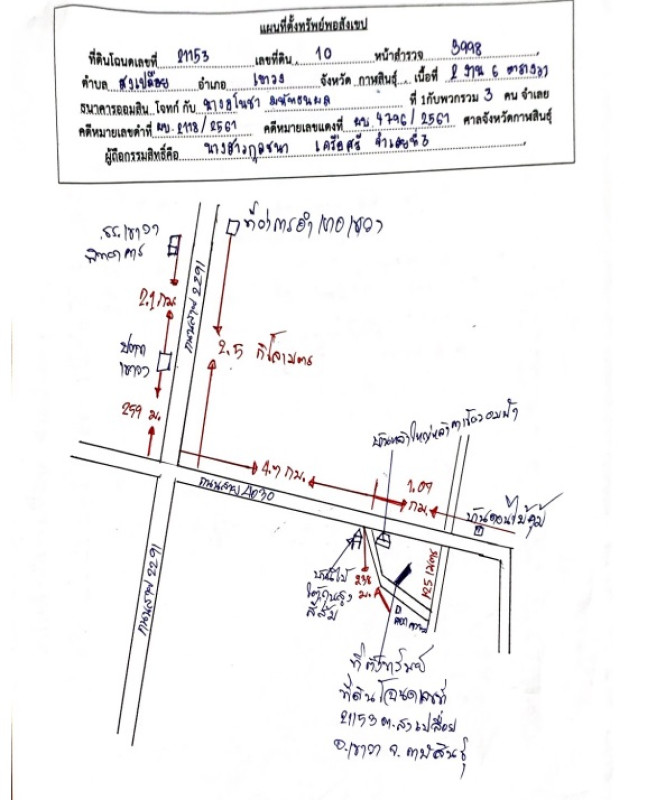 แผนที่ตั้งทรัพย์พอสังเขป
ที่ดินโฉนดเลขที่ 21153 เลขที่ดิน 10 หน้าสำรวจ 3998
ตำบล สงเปลือย อำเภอ เขาวง จังหวัด กาฬสินธุ์ เนื้อที่ 2 งาน 6 ตารางวา
ธนาคารออมสิน โจทก์ กับ ที่ 1กับพวกรวม 3 คน จำเลย
คดีหมายเลขดำที่ ผบ.2118/2561 คดีหมายเลขแดงที่ ผบ.4796/2561 ศาลจังหวัดกาฬสินธุ์
ผู้ถือกรรมสิทธิ์คือ เครือศรี จำเลยที่ 3
ที่ว่าการอำเภอเขาวง
รร.เขาวง
พิทยาคาร
ถนนสาย 2291
2.1 กม.
2.5 กิโลเมตร
ปตท
เขาวง
259 ม.
4.7 กม.
ถนนสาย 4030
1.09
กม.
บ้านดอนไม้คุ้ม
บ้านไม้
ใต้ถุนสูง
สีส้ม
238
ม.
125 เมตร
ถนนสาย 2291
ที่ตั้งทรัพย์
ที่ดินโฉนดเลขที่
21153 ต.สงเปลือย
อ.เขาวง จ.กาฬสินธุ์